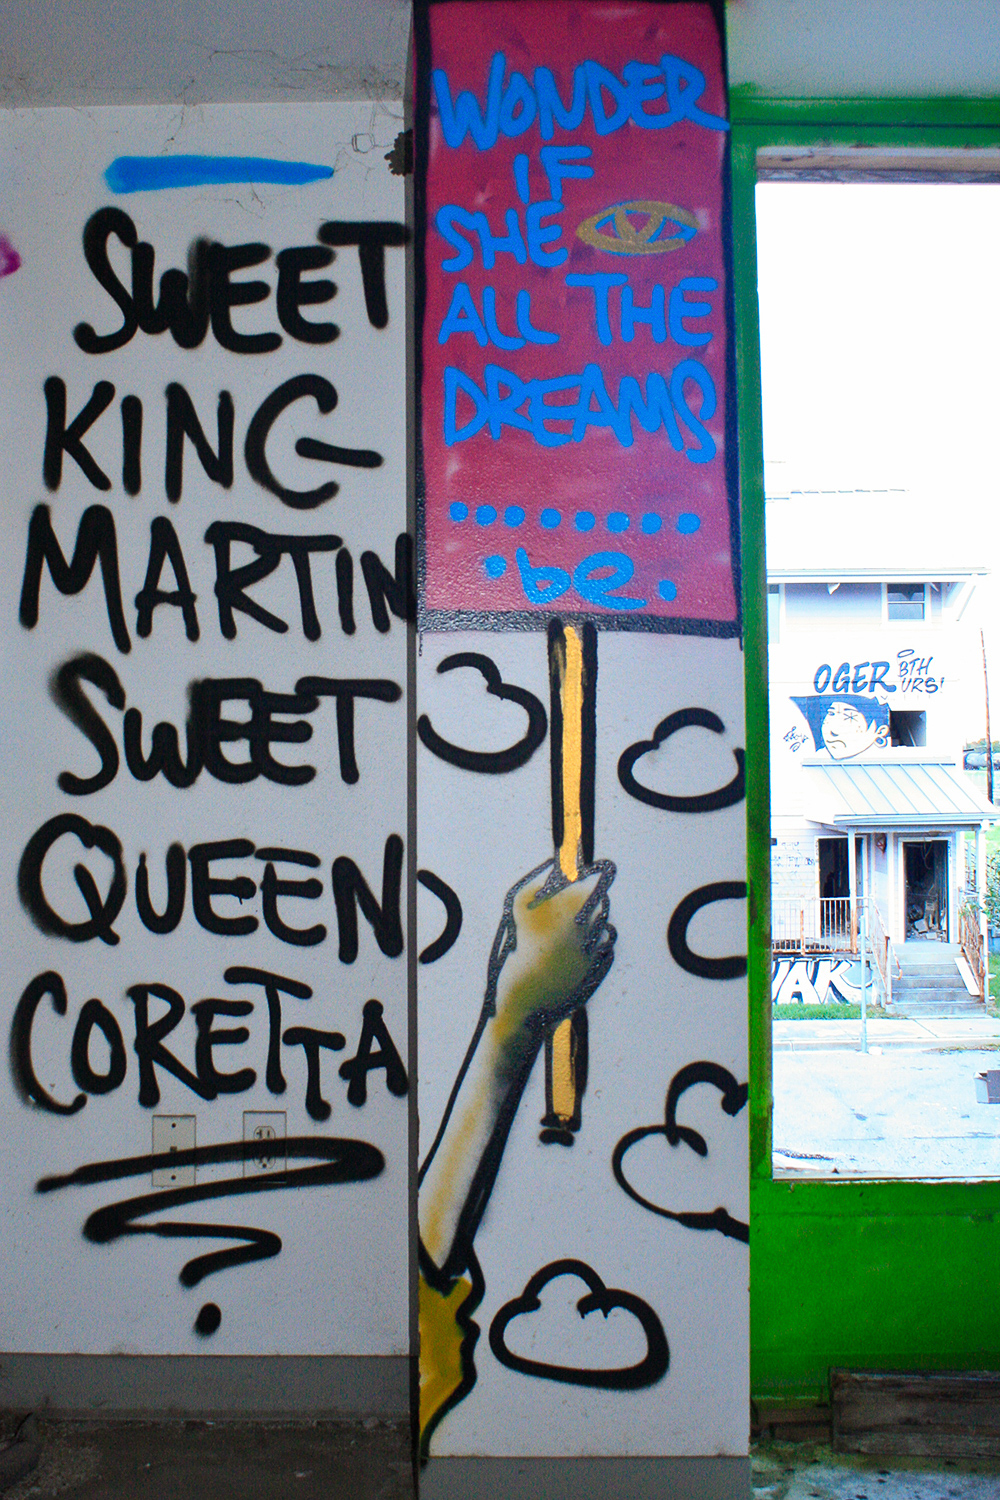 SWEET
KING
MARTIN
SWEET
QUEEN
CORETTA
WONDER
IF
SHE
ALL THE
DREAMS
........
.be.
OGER
BTH
URS!